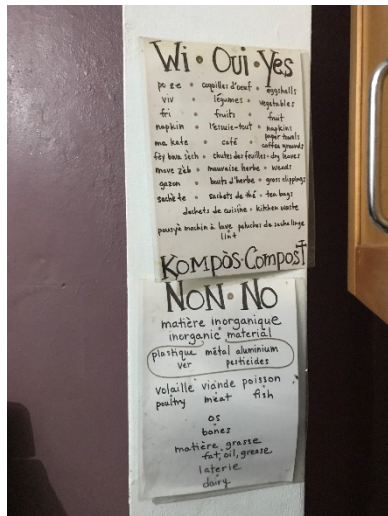 Wi • Oui • Yes
po ze • coquilles d'oeuf • eggshells
viv • légumes • vegetables
fri • fruits • fruit
napkin • l'essuie-tout • napkins
paper towels
ma kafe • café • coffee grounds
fèy bwa sèch • chutes des feuilles • dry leaves
move zèb • mauvaise herbe • weeds
gazon • bouts d'herbe • grass clippings
sachè te • sachets de thé • tea bags
dechets de cuisine • kitchen waste
pousyè mechin à lave peluches de seche linge
lint
Kompòs • Compost
Non • No
matière inorganique
inorganic material
plastique métal aluminium
ver pesticides
volaille viande poisson
poultry meat fish
os
bones
matière grasse
fat, oil, grease
laterie
dairy